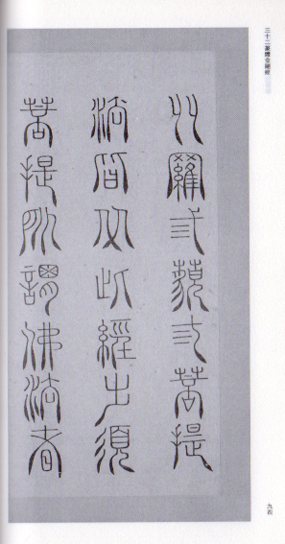 三十二篆體金剛經
多羅三藐三菩提
法皆從此經出須
菩提所謂佛法者
九四